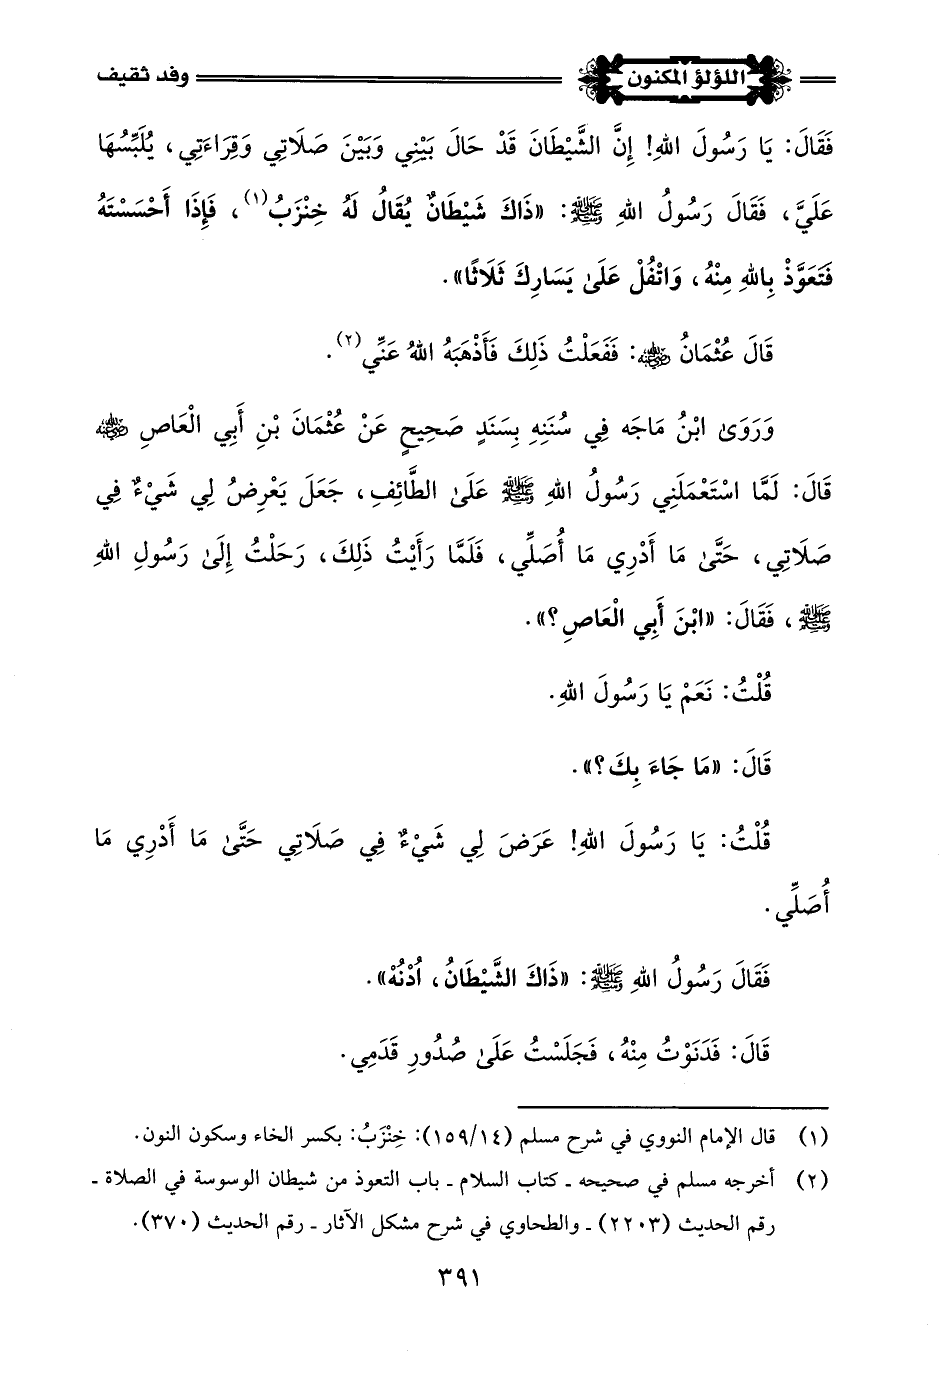 اللؤلؤ المكنون
وفد ثقيف
فَقَالَ: يَا رَسُولَ اللهِ! إِنَّ الشَّيْطَانَ قَدْ حَالَ بَيْنِي وَبَيْنَ صَلَاتِي وَقِرَاءَتِي، يُلَبِّسُهَا
عَلَيَّ، فَقَالَ رَسُولُ اللهِ ﷺ: «ذَاكَ شَيْطَانٌ يُقَالُ لَهُ خِنْزَبُ(١)، فَإِذَا أَحْسَسْتَهُ
فَتَعَوَّذْ بِاللهِ مِنْهُ، وَاتْفُلْ عَلَىٰ يَسَارِكَ ثَلَاثًا».
قَالَ عُثْمَانُ رضي الله عنه: فَفَعَلْتُ ذَلِكَ فَأَذْهَبَهُ اللهُ عَنِّي(٢).
وَرَوَىٰ ابْنُ مَاجَه فِي سُنَنِهِ بِسَنَدٍ صَحِيحٍ عَنْ عُثْمَانَ بْنِ أَبِي الْعَاصِ رضي الله عنه
قَالَ: لَمَّا اسْتَعْمَلَنِي رَسُولُ اللهِ ﷺ عَلَىٰ الطَّائِفِ، جَعَلَ يَعْرِضُ لِي شَيْءٌ فِي
صَلَاتِي، حَتَّىٰ مَا أَدْرِي مَا أُصَلِّي، فَلَمَّا رَأَيْتُ ذَلِكَ، رَحَلْتُ إِلَىٰ رَسُولِ اللهِ
ﷺ، فَقَالَ: «ابْنَ أَبِي الْعَاصِ؟».
قُلْتُ: نَعَمْ يَا رَسُولَ اللهِ.
قَالَ: «مَا جَاءَ بِكَ؟».
قُلْتُ: يَا رَسُولَ اللهِ! عَرَضَ لِي شَيْءٌ فِي صَلَاتِي حَتَّىٰ مَا أَدْرِي مَا
أُصَلِّي.
فَقَالَ رَسُولُ اللهِ ﷺ: «ذَاكَ الشَّيْطَانُ، ادْنُهْ».
قَالَ: فَدَنَوْتُ مِنْهُ، فَجَلَسْتُ عَلَىٰ صُدُورِ قَدَمِي.
(١) قال الإمام النووي في شرح مسلم (١٥٩/١٤): خِنْزَبُ: بكسر الخاء وسكون النون.
(٢) أخرجه مسلم في صحيحه ـ كتاب السلام ـ باب التعوذ من شيطان الوسوسة في الصلاة ـ
رقم الحديث (٢٢٠٣) ـ والطحاوي في شرح مشكل الآثار ـ رقم الحديث (٣٧٠).
٣٩١